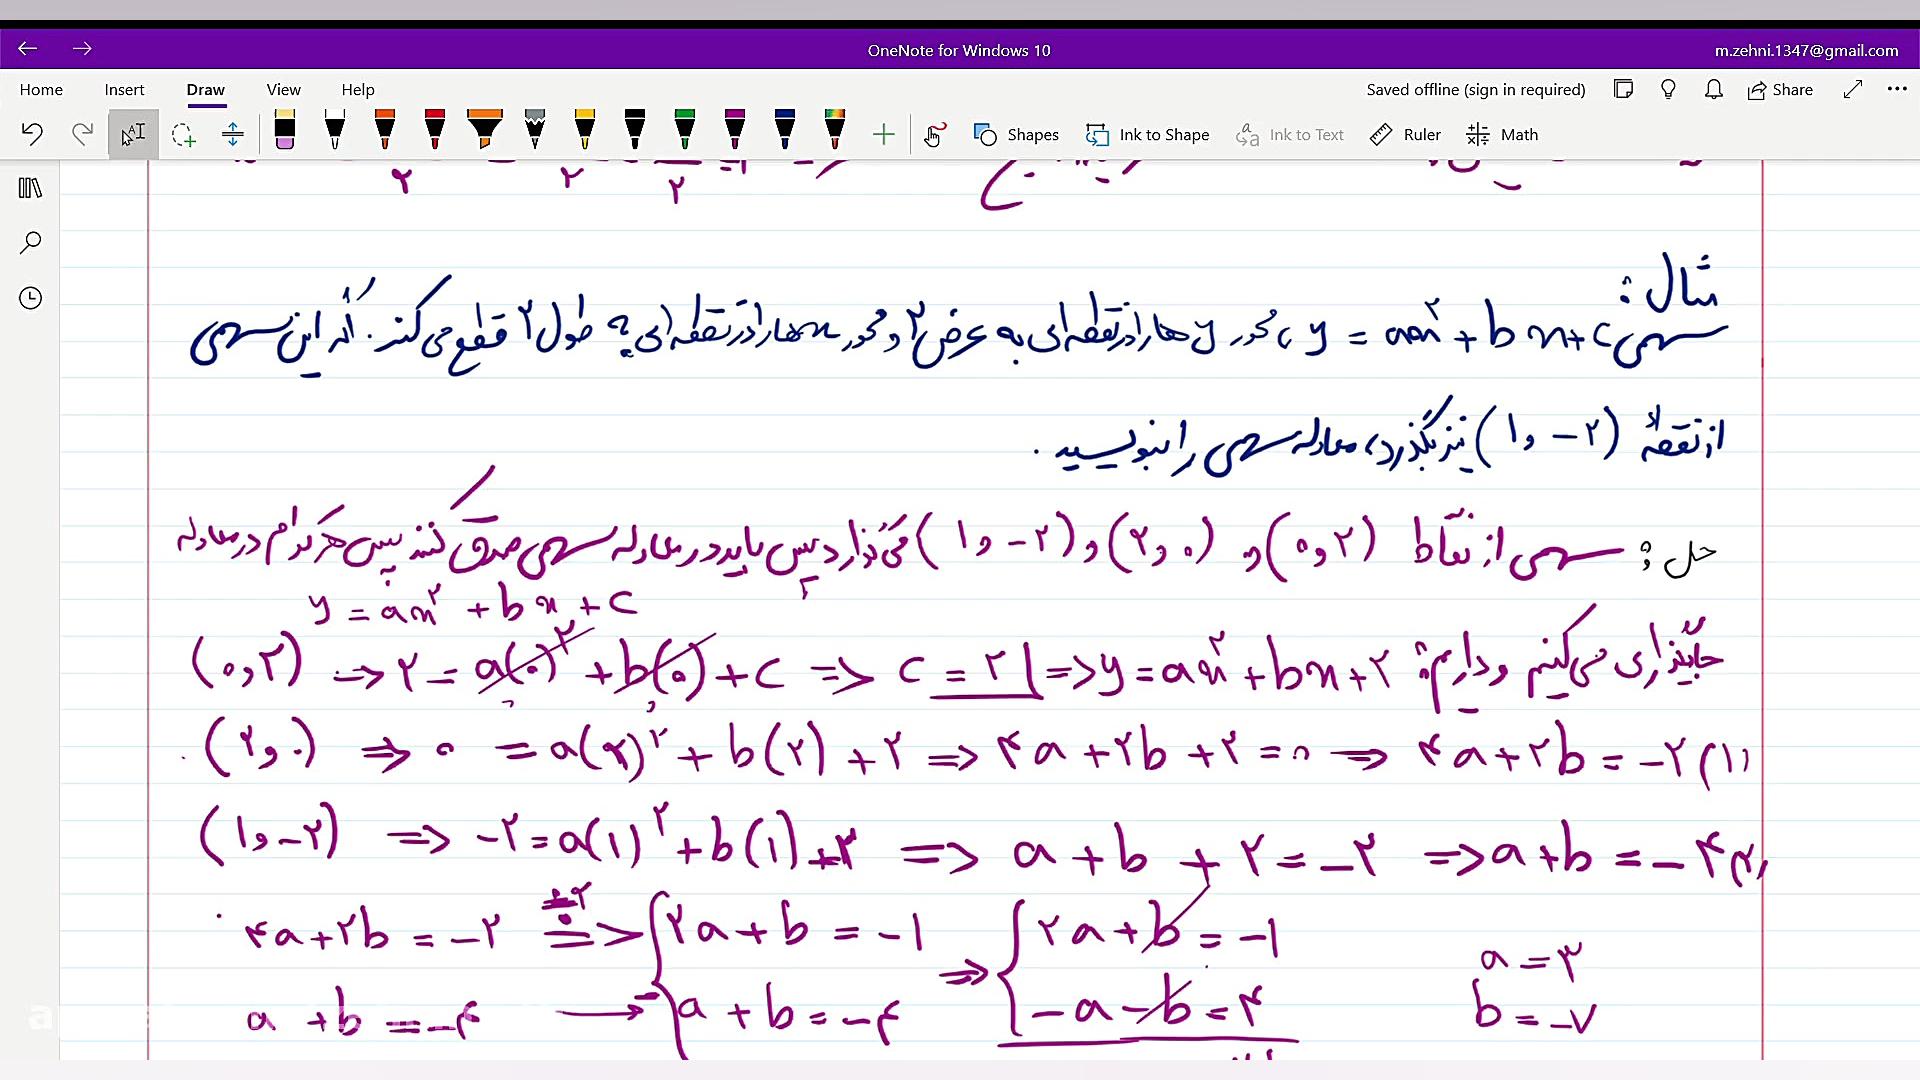 OneNote for Windows 10
m.zehni.1347@gmail.com
Home Insert Draw View Help
Saved offline (sign in required) Share
Shapes Ink to Shape Ink to Text Ruler Math
مثال :
سهمی y = ax² + bx + c ، محور y ها را در نقطه ای به عرض ۲ و محور x ها را در نقطه ای به طول ۲ قطع می کند . اگر این سهمی
از نقطهٔ (۱ و -۲) نیز بگذرد، معادله سهمی را بنویسید .
حل : سهمی از نقاط (۰ و ۲) و (۲ و ۰) و (۱ و -۲) می گذارد پس باید در معادله سهمی صدق کنند پس هر کدام در معادله
جایگذاری می کنیم و داریم:
y = ax² + bx + c
(۰ و ۲) => ۲ = a(۰)² + b(۰) + c => c = ۲ => y = ax² + bx + ۲
(۲ و ۰) => ۰ = a(۲)² + b(۲) + ۲ => ۴a + ۲b + ۲ = ۰ => ۴a + ۲b = -۲ (۱)
(۱ و -۲) => -۲ = a(۱)² + b(۱) + ۲ => a + b + ۲ = -۲ => a + b = -۴ (۲)
۴a + ۲b = -۲ ÷۲ => ۲a + b = -۱ => ۲a + b = -۱ a = ۳
a + b = -۴ → a + b = -۴ -a - b = ۴ b = -۷